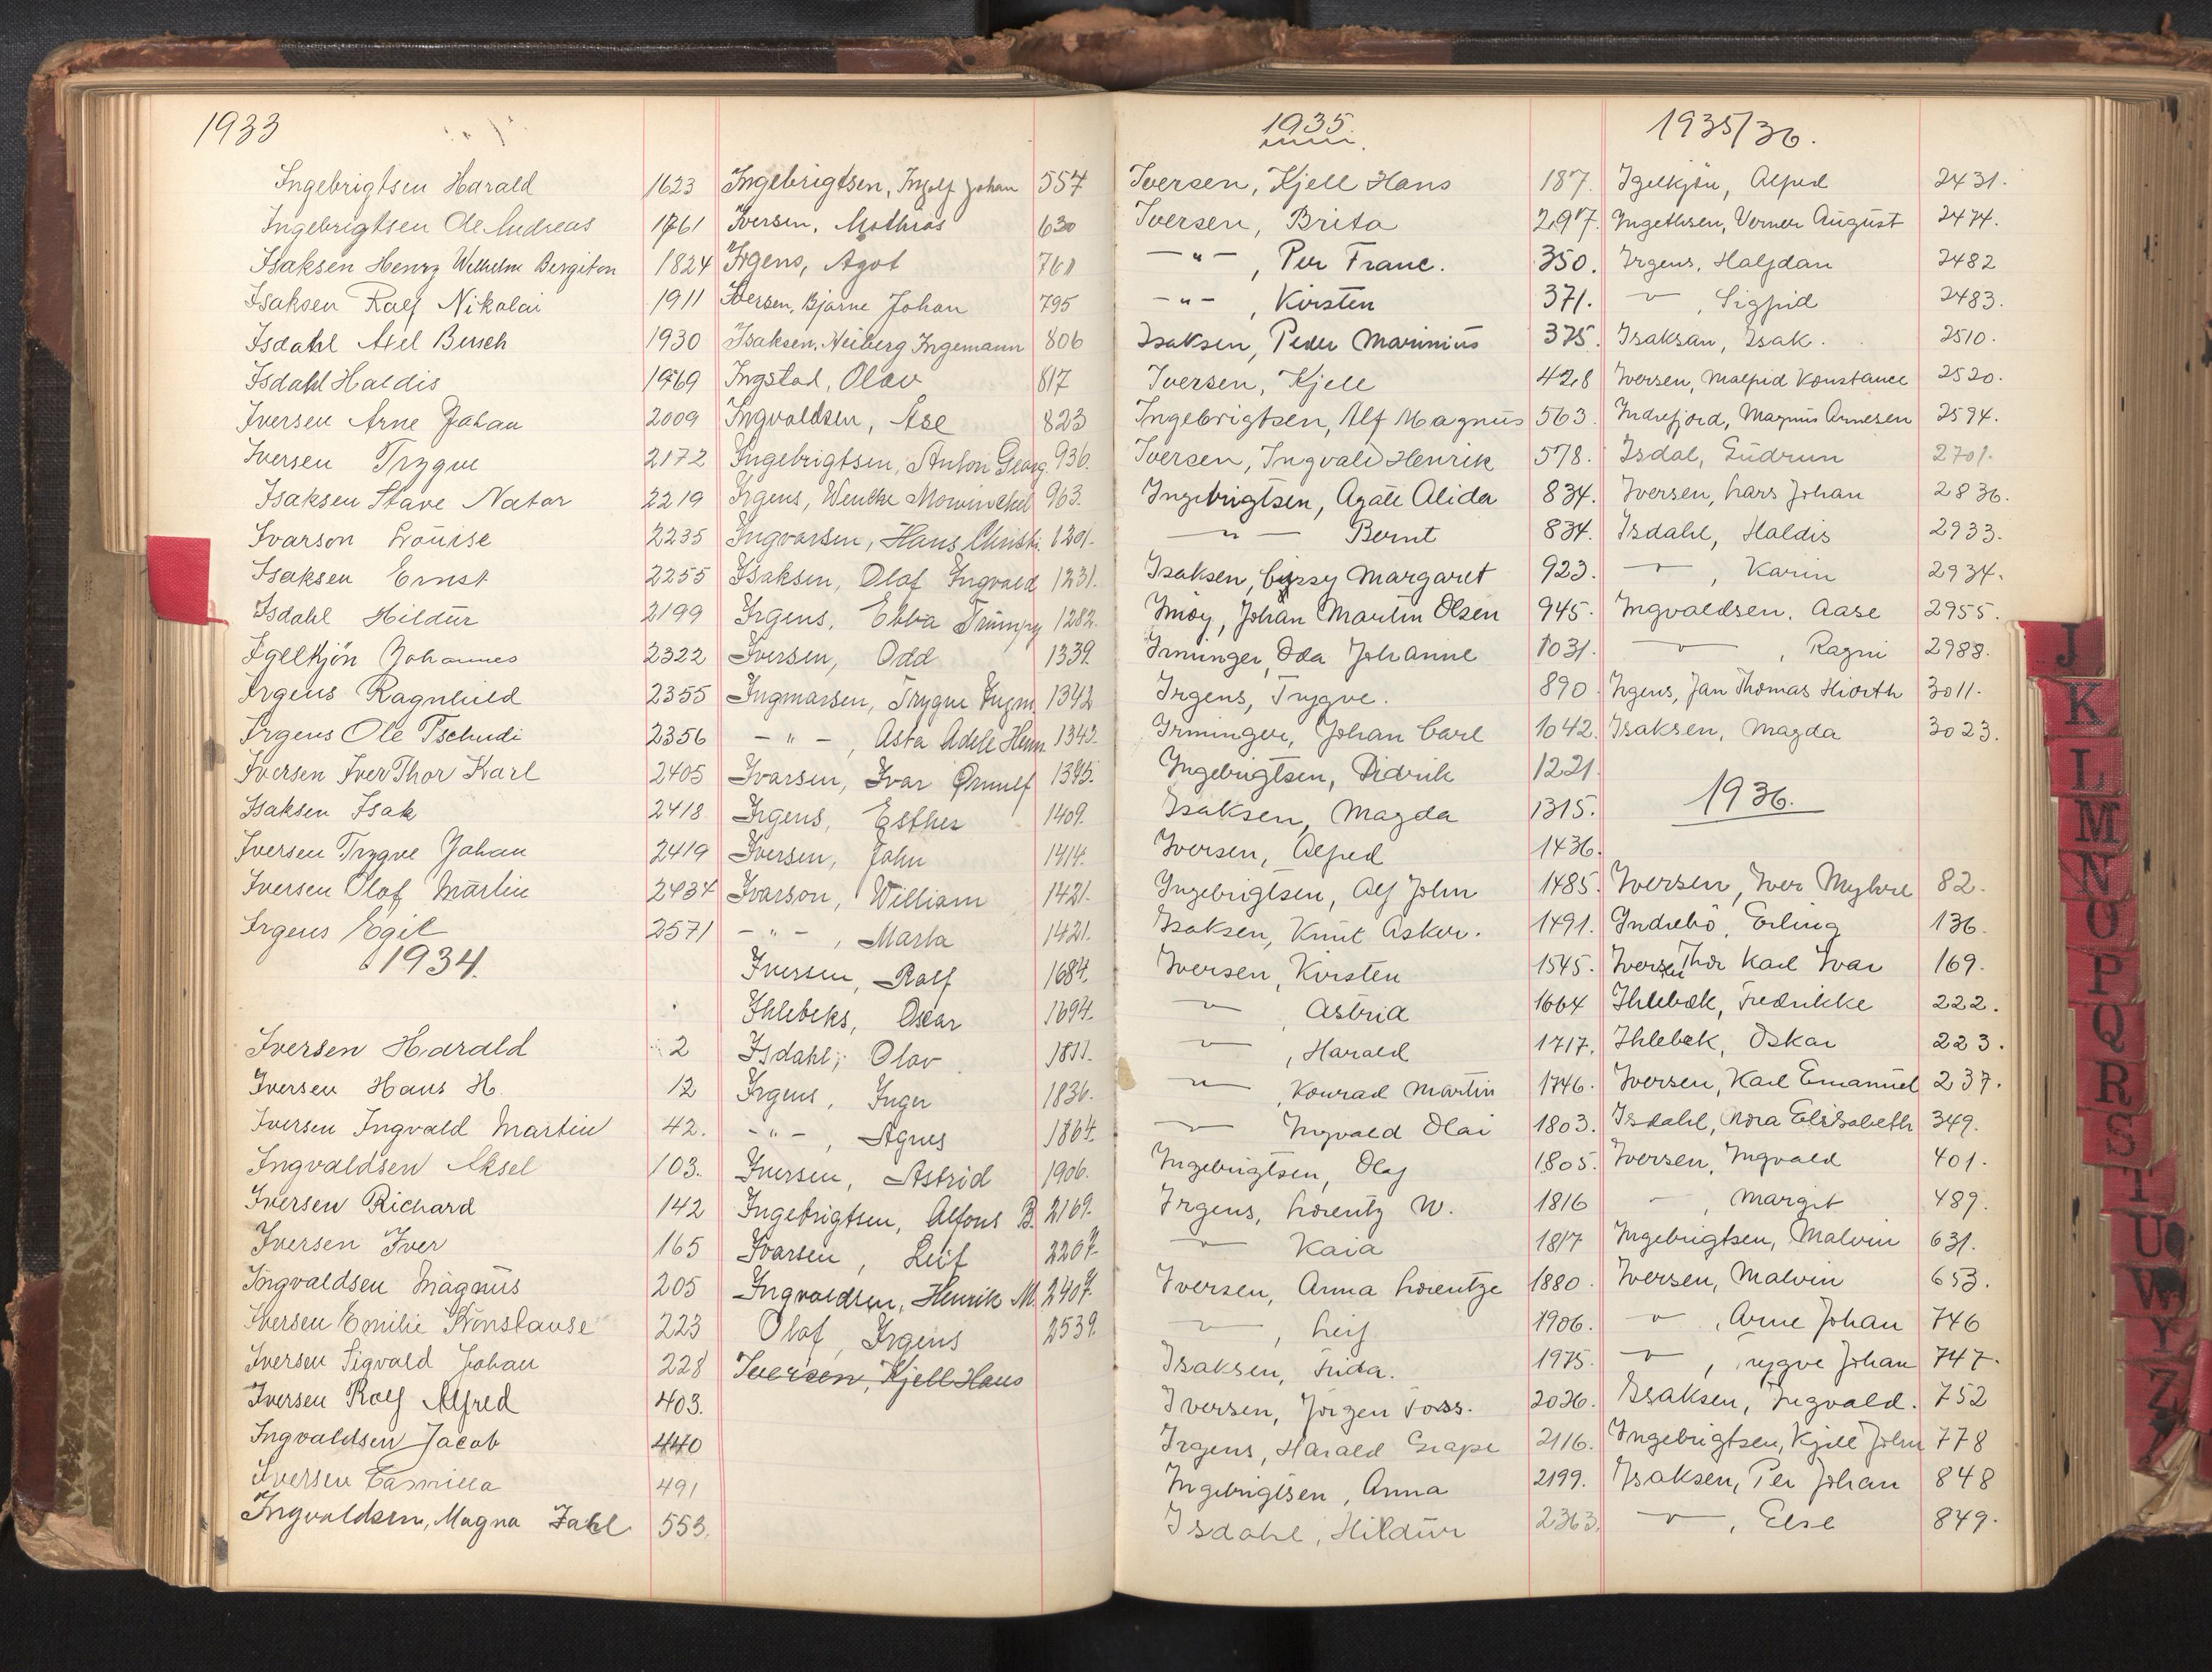 1933
Ingebrigtsen Harald 1623
Ingebrigtsen Ole Andreas 1761
Isaksen Henry Wilhelm Bergiton 1824
Isaksen Ralf Nikolai 1911
Isdahl Axel Busch 1930
Isdahl Haldis 1969
Iversen Arne Johan 2009
Iversen Trygve 2172
Isaksen Stave Natar 2219
Ivarson Louise 2235
Isaksen Ernst 2255
Isdahl Hildur 2199
Igelkjön Johannes 2322
Irgens Ragnhild 2355
Irgens Ole Tschudi 2356
Iversen Iver Thor Karl 2405
Isaksen Isak 2418
Iversen Trygve Johan 2419
Iversen Olaf Martin 2434
Irgens Egil 2571
1934.
Iversen Harald 2
Iversen Hans H. 12
Iversen Ingvald Martin 42.
Ingvaldsen Aksel 103.
Iversen Richard 142
Iversen Iver 165
Ingvaldsen Magnus 205
Iversen Emilie Konstanse 223
Iversen Sigvald Johan 228
Iversen Rolf Alfred 403.
Ingvaldsen Jacob 440
Iversen Camilla 491
Ingvaldsen, Magna 553.
Ingebrigtsen, Ingolf Johan 557
Iversen, Mathias 630
Irgens, Agot 761
Iversen, Bjarne Johan 795
Isaksen, Heiberg Ingemann 806
Ingstad, Olav 817
Ingvaldsen, Åse 823
Ingebrigtsen, Anton Georg 936.
Irgens, Wencke Mowinckel 963.
Ingvarsen, Hans Christi. 1201.
Isaksen, Olaf Ingvald 1231.
Irgens, Ebba Trumpy 1282.
Iversen, Odd 1339.
Ingmarsen, Trygve Ingm. 1342
— " —, Asta Adele Henn. 1343.
Ivarsen, Ivar Ørnulf 1395.
Irgens, Esther 1409.
Iversen, John 1414.
Ivarson, William 1421.
— " —, Marta 1421.
Iversen, Ralf 1684.
Ihlebeks, Oscar 1694.
Isdahl, Olav 1811.
Irgens, Inger 1836.
— " —, Agnes 1864.
Iversen, Astrid 1906.
Ingebrigtsen, Alfons B. 2169.
Ivarsen, Leif 2207.
Ingvaldsen, Henrik M. 2407.
Olaf, Irgens 2539.
Iversen, Kjell Hans
1935.
Iversen, Kjell Hans 187.
Iversen, Brita 297.
— " —, Per Franc. 350.
— " —, Kirsten 371.
Isaksen, Peder Marinius 375.
Iversen, Kjell 428
Ingebrigtsen, Alf Magnus 563
Iversen, Ingvald Henrik 578.
Ingebrigtsen, Agate Alida 834.
— " — Bernt 834.
Isaksen, Margaret 923.
Imøy, Johan Martin Olsen 945.
Irminger, Ida Johanne 1031.
Irgens, Trygve. 890.
Irminger, Johan Carl 1042.
Ingebrigtsen, Didrik 1221.
Isaksen, Magda 1315.
Iversen, Alfred 1436.
Ingebrigtsen, Alf John 1485.
Isaksen, Knut Asker. 1491.
Iversen, Kirsten 1545.
— " —, Astrid 1664
— " —, Harald 1717.
— " —, Konrad Martin 1746.
— " — Ingvald Olai 1803.
Ingebrigtsen, Olaf 1805.
Irgens, Lorentz W. 1816
— " — Kaia 1817
Iversen, Anna Lorentze 1880.
— " —, Leif 1906.
Isaksen, Frida. 1975.
Iversen, Jörgen Foss. 2036.
Irgens, Harald Grape 2116.
Ingebrigtsen, Anna 2199.
Isdahl, Hildur 2363.
1935/36.
Igelkjön, Alfred 2431.
Ingethsen, Verner August 2474.
Irgens, Halfdan 2482
— " —, Sigfrid 2483.
Isaksan, Isak. 2510.
Iversen, Malfrid Konstance 2520.
Indrefjord, Magnus Arnesen 2594.
Isdal, Gudrun 2701.
Iversen, Lars Johan 2836.
Isdahl, Haldis 2933.
— " —, Karin 2934.
Ingvaldsen, Aase 2955.
— " —, Ragni 2988.
Irgens, Jan Thomas Hiorth 3011.
Isaksen, Magda 3023.
1936.
Iversen, Iver Myhre 82.
Indrebö, Erling 136.
Iversen Thor Karl Ivar 169.
Ihlebæk, Fredrikke 222.
Ihlebæk, Oskar 223.
Iversen, Karl Emanuel 237.
Isdahl, Nora Elisabeth 349.
Iversen, Ingvald 401.
— " —, Margit 489.
Ingebrigtsen, Malvin 631.
Iversen, Malvin 653.
— " —, Arne Johan 746
— " —, Trygve Johan 747.
Isaksen, Ingvald. 752
Ingebrigtsen, Kjell John 778
Isaksen, Per Johan 848
— " —, Else 849.
J
K
L
M
N
O
P
Q
R
S
T
U
W
Y
Z